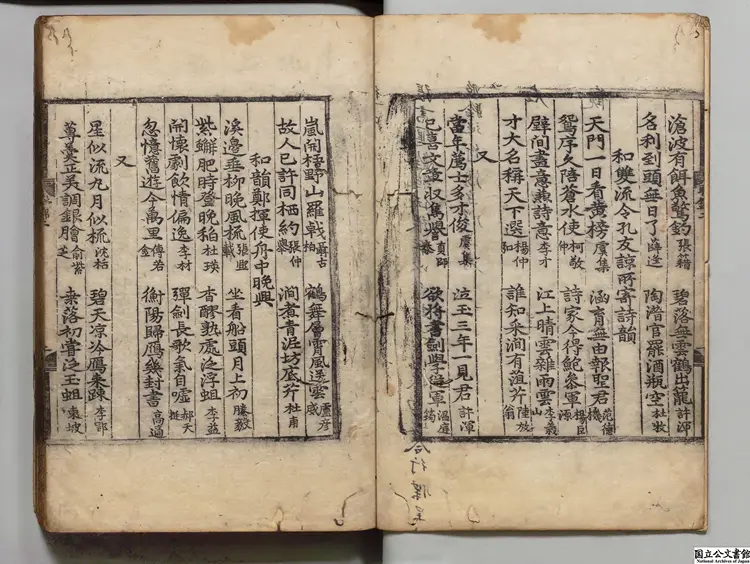 滄波有餌魚驚釣 張籍 碧落無雲鶴出籠 許渾
名利到頭無日了 薛逢 陶潜官罷酒瓶空 杜牧
和雙流令孔友諒所寄詩韻
天門一日看黃榜 虞集 涵育無由報聖君 范德機
鴛序久陪蒼水使 柯敬仲 詩家今得鮑參軍 楊臣源
壁間盡意無詩意 李才 江上晴雲雜雨雲 李義山
才大名稱天下選 楊仲弘 誰知采澗有誼芹 陸放翁
又
當年萬士多才俊 虞集 泣玉三年一見君 許渾
已喜文章収雋譽 貢師泰 欲將書劍學從軍 溫庭筠
嵐開野山羅戟 聶古柏 鶴舞層霄風送雲 盧彦威
故人已許同栖約 張仲舉 澗煮青泥坊底芹 杜甫
和韻鄭揮使舟中晚興
溪邊垂柳晚風梳 張載 坐看船頭月上初 滕毅
紫蠏肥時登晚稻 杜瑛 杏醪熟處泛浮蛆 李益
開懷劇飲情偏逸 李材 彈劍長歌氣自噓 郝天挺
忽憶舊遊今萬里 傅若金 衡陽歸鴈幾封書 高適
又
星似流九月似梳 沈枯 碧天凉冷鴈来踈 李郢
蓴羮正美調銀膾 俞紫芝 桒落初嘗泛玉蛆 東坡
国立公文書館
National Archives of Japan